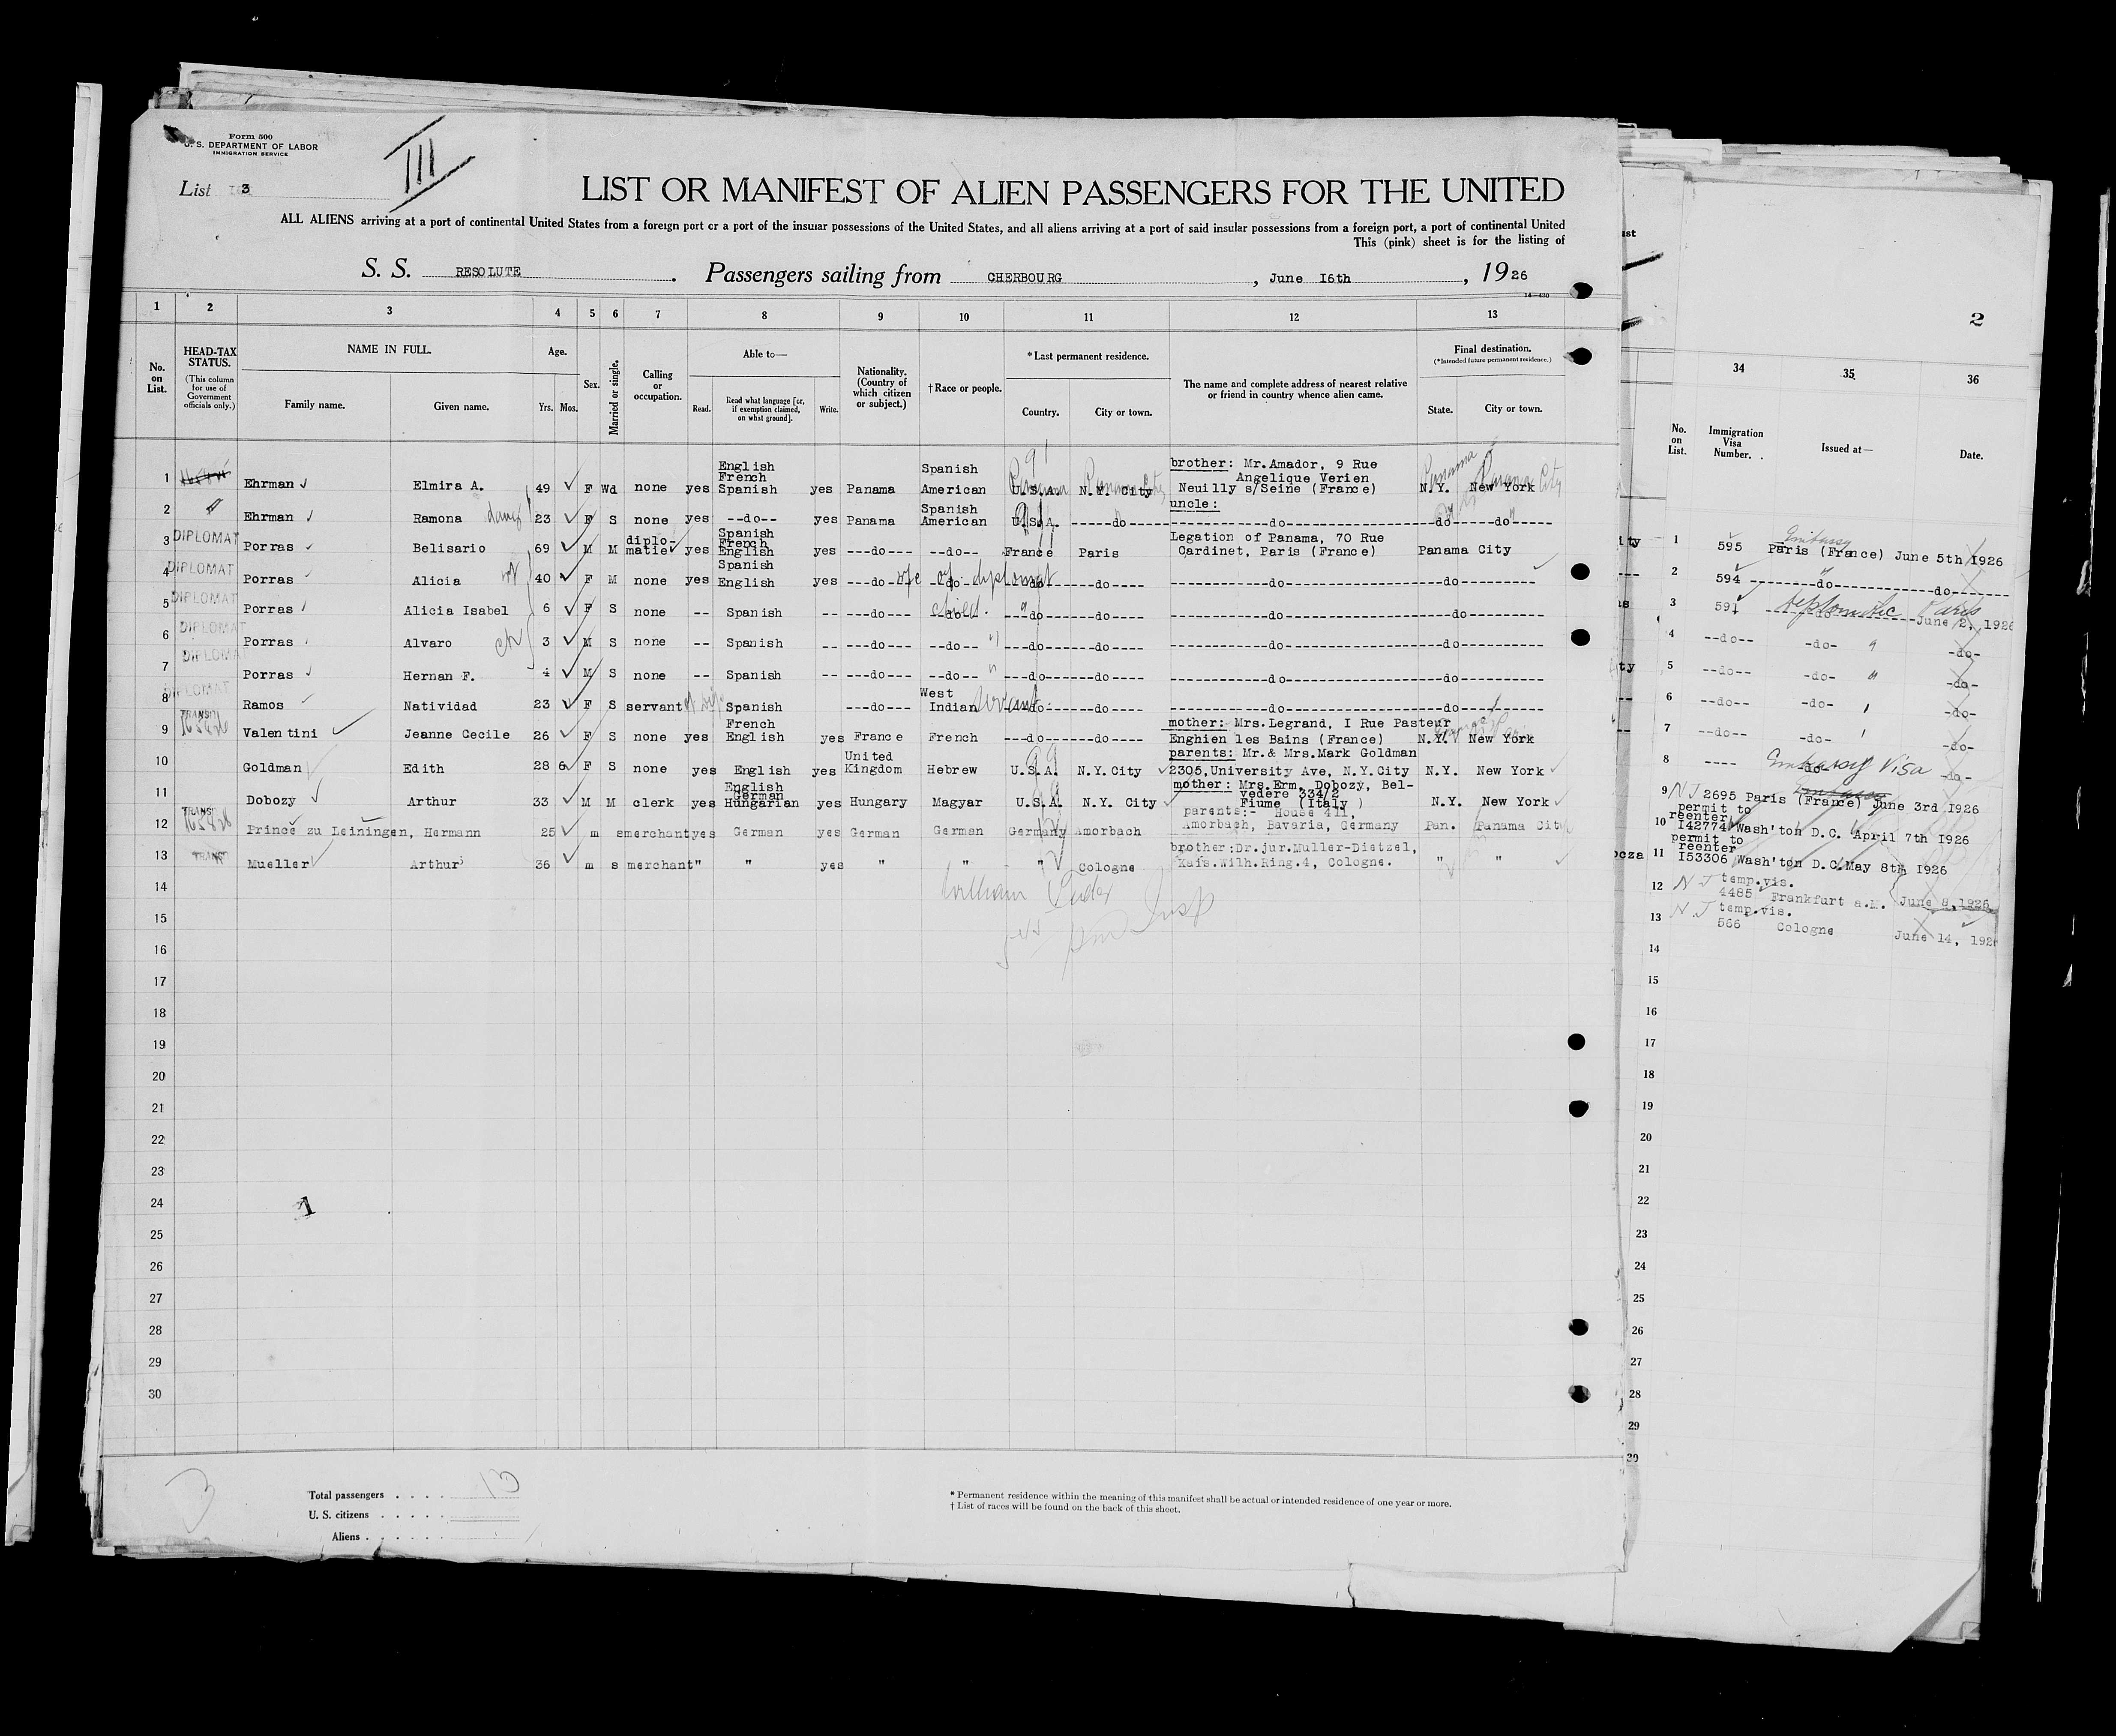 Form 500
U. S. DEPARTMENT OF LABOR
IMMIGRATION SERVICE
III
List 3
LIST OR MANIFEST OF ALIEN PASSENGERS FOR THE UNITED
ALL ALIENS arriving at a port of continental United States from a foreign port or a port of the insular possessions of the United States, and all aliens arriving at a port of said insular possessions from a foreign port, a port of continental United
This (pink) sheet is for the listing of
S. S. RESOLUTE. Passengers sailing from CHERBOURG, June I6th, 1926
14-430
1 2 3 4 5 6 7 8 9 10 11 12 13
No. on List. HEAD-TAX STATUS. (This column for use of Government officials only.) NAME IN FULL. Family name. Given name. Age. Yrs. Mos. Sex. Married or single. Calling or occupation. Able to— Read. Read what language [or, if exemption claimed, on what ground]. Write. Nationality. (Country of which citizen or subject.) † Race or people. * Last permanent residence. Country. City or town. The name and complete address of nearest relative or friend in country whence alien came. Final destination. (*Intended future permanent residence.) State. City or town.
1 Ehrman Elmira A. 49 F Wd none yes English French Spanish yes Panama Spanish American U.S.A. N.Y. City Panama City brother: Mr.Amador, 9 Rue Angelique Verien Neuilly s/Seine (France) N.Y. New York Panama Panama City
2 Ehrman Ramona 23 F S none yes --do-- yes Panama Spanish American U.S.A. -----do----- uncle: -----do----- do -----do-----
3 DIPLOMAT Porras Belisario 69 M M diplo-matic yes Spanish French English yes ---do--- --do-- France Paris Legation of Panama, 70 Rue Cardinet, Paris (France) Panama City
4 DIPLOMAT Porras Alicia 40 F M none yes Spanish English yes ---do--- --do-- wife of diplomat do ----do---- -----do----- ----do-----
5 DIPLOMAT Porras Alicia Isabel 6 F S none -- Spanish -- ---do--- do child. do ----do---- -----do----- ----do-----
6 DIPLOMAT Porras Alvaro 3 M S none -- Spanish -- ---do--- --do-- " ---do---- ----do---- -----do----- ----do-----
7 DIPLOMAT Porras Hernan F. 4 M S none -- Spanish -- ---do--- --do-- " ---do---- ----do---- -----do----- ----do-----
8 DIPLOMAT Ramos Natividad 23 F S servant Spanish ---do--- West Indian servant do ----do---- -----do----- ----do-----
9 TRANSIT Valentini Jeanne Cecile 26 F S none yes French English yes France French ---do---- ----do---- mother: Mrs.Legrand, I Rue Pasteur Enghien les Bains (France) N.Y. New York
10 Goldman Edith 28 6 F S none yes English yes United Kingdom Hebrew U.S.A. N.Y.City parents: Mr.& Mrs.Mark Goldman 2305,University Ave, N.Y.City N.Y. New York
11 Dobozy Arthur 33 M M clerk yes English German Hungarian yes Hungary Magyar U.S.A. N.Y. City mother: Mrs.Erm, Dobozy, Bel-vedere 334/2 Fiume (Italy ) N.Y. New York
12 TRANSIT Prince zu Leiningen, Hermann 25 m s merchant yes German yes German German Germany Amorbach parents:- House 411, Amorbach, Bavaria, Germany Pan. Panama City
13 TRANSIT Mueller Arthur 36 m s merchant " " yes " " " Cologne brother:Dr.jur.Muller-Dietzel, Kais.Wilh.Ring.4, Cologne. " "
14
15
16
17
18
19
20
21
22
23
24
25
26
27
28
29
30
1
3
Total passengers . . . . 13
U. S. citizens . . . . .
Aliens . . . . . .
* Permanent residence within the meaning of this manifest shall be actual or intended residence of one year or more.
† List of races will be found on the back of this sheet.
2
34 35 36
No. on List. Immigration Visa Number. Issued at— Date.
1 595 Embassy Paris (France) June 5th 1926
2 594 --------do-------- do
3 591 diplomatic Paris do June 2, 1926
4 --do-- -do- " -do-
5 --do-- -do- " -do-
6 --do-- -do- -do-
7 --do-- -do- -do-
8 ---- Embassy Visa -do- -do-
9 2695 Paris (France) June 3rd I926
10 permit to reenter I42774 Wash'ton D.C. April 7th I926
11 permit to reenter I53306 Wash'ton D.C. May 8th I926
12 temp.vis. 4485 Frankfurt a.M. June 8,1926
13 temp.vis. 566 Cologne June 14, 192
14
15
16
17
18
19
20
21
22
23
24
25
26
27
28
29
30